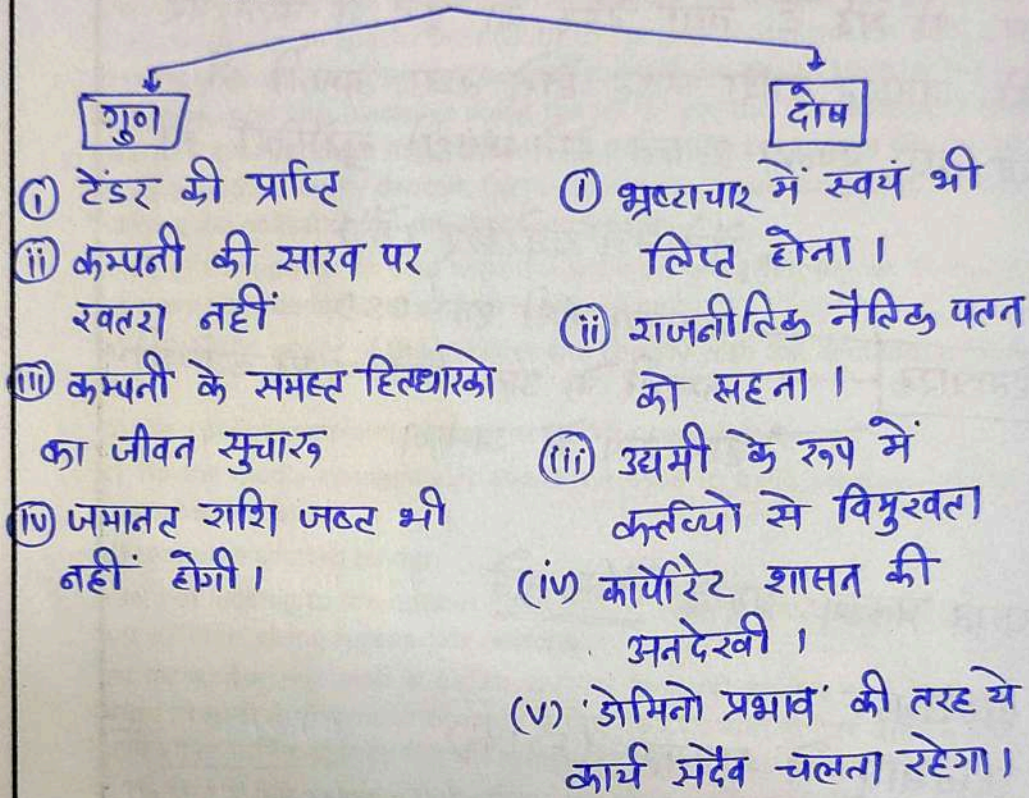 गुण
① टेंडर की प्राप्ति
ⅱ कम्पनी की साख पर
खतरा नहीं
ⅲ कम्पनी के समस्त हितधारको
का जीवन सुचारू
ⅳ जमानत राशि जब्त भी
नहीं होगी।
दोष
① भ्रष्टाचार में स्वयं भी
लिप्त होना।
ⅱ राजनीतिक नैतिक पतन
को सहना।
ⅲ उद्यमी के रूप में
कर्तव्यो से विमुखता
(iv) कार्पोरेट शासन की
अनदेखी।
(v) 'डोमिनो प्रभाव' की तरह ये
कार्य सदैव चलता रहेगा।